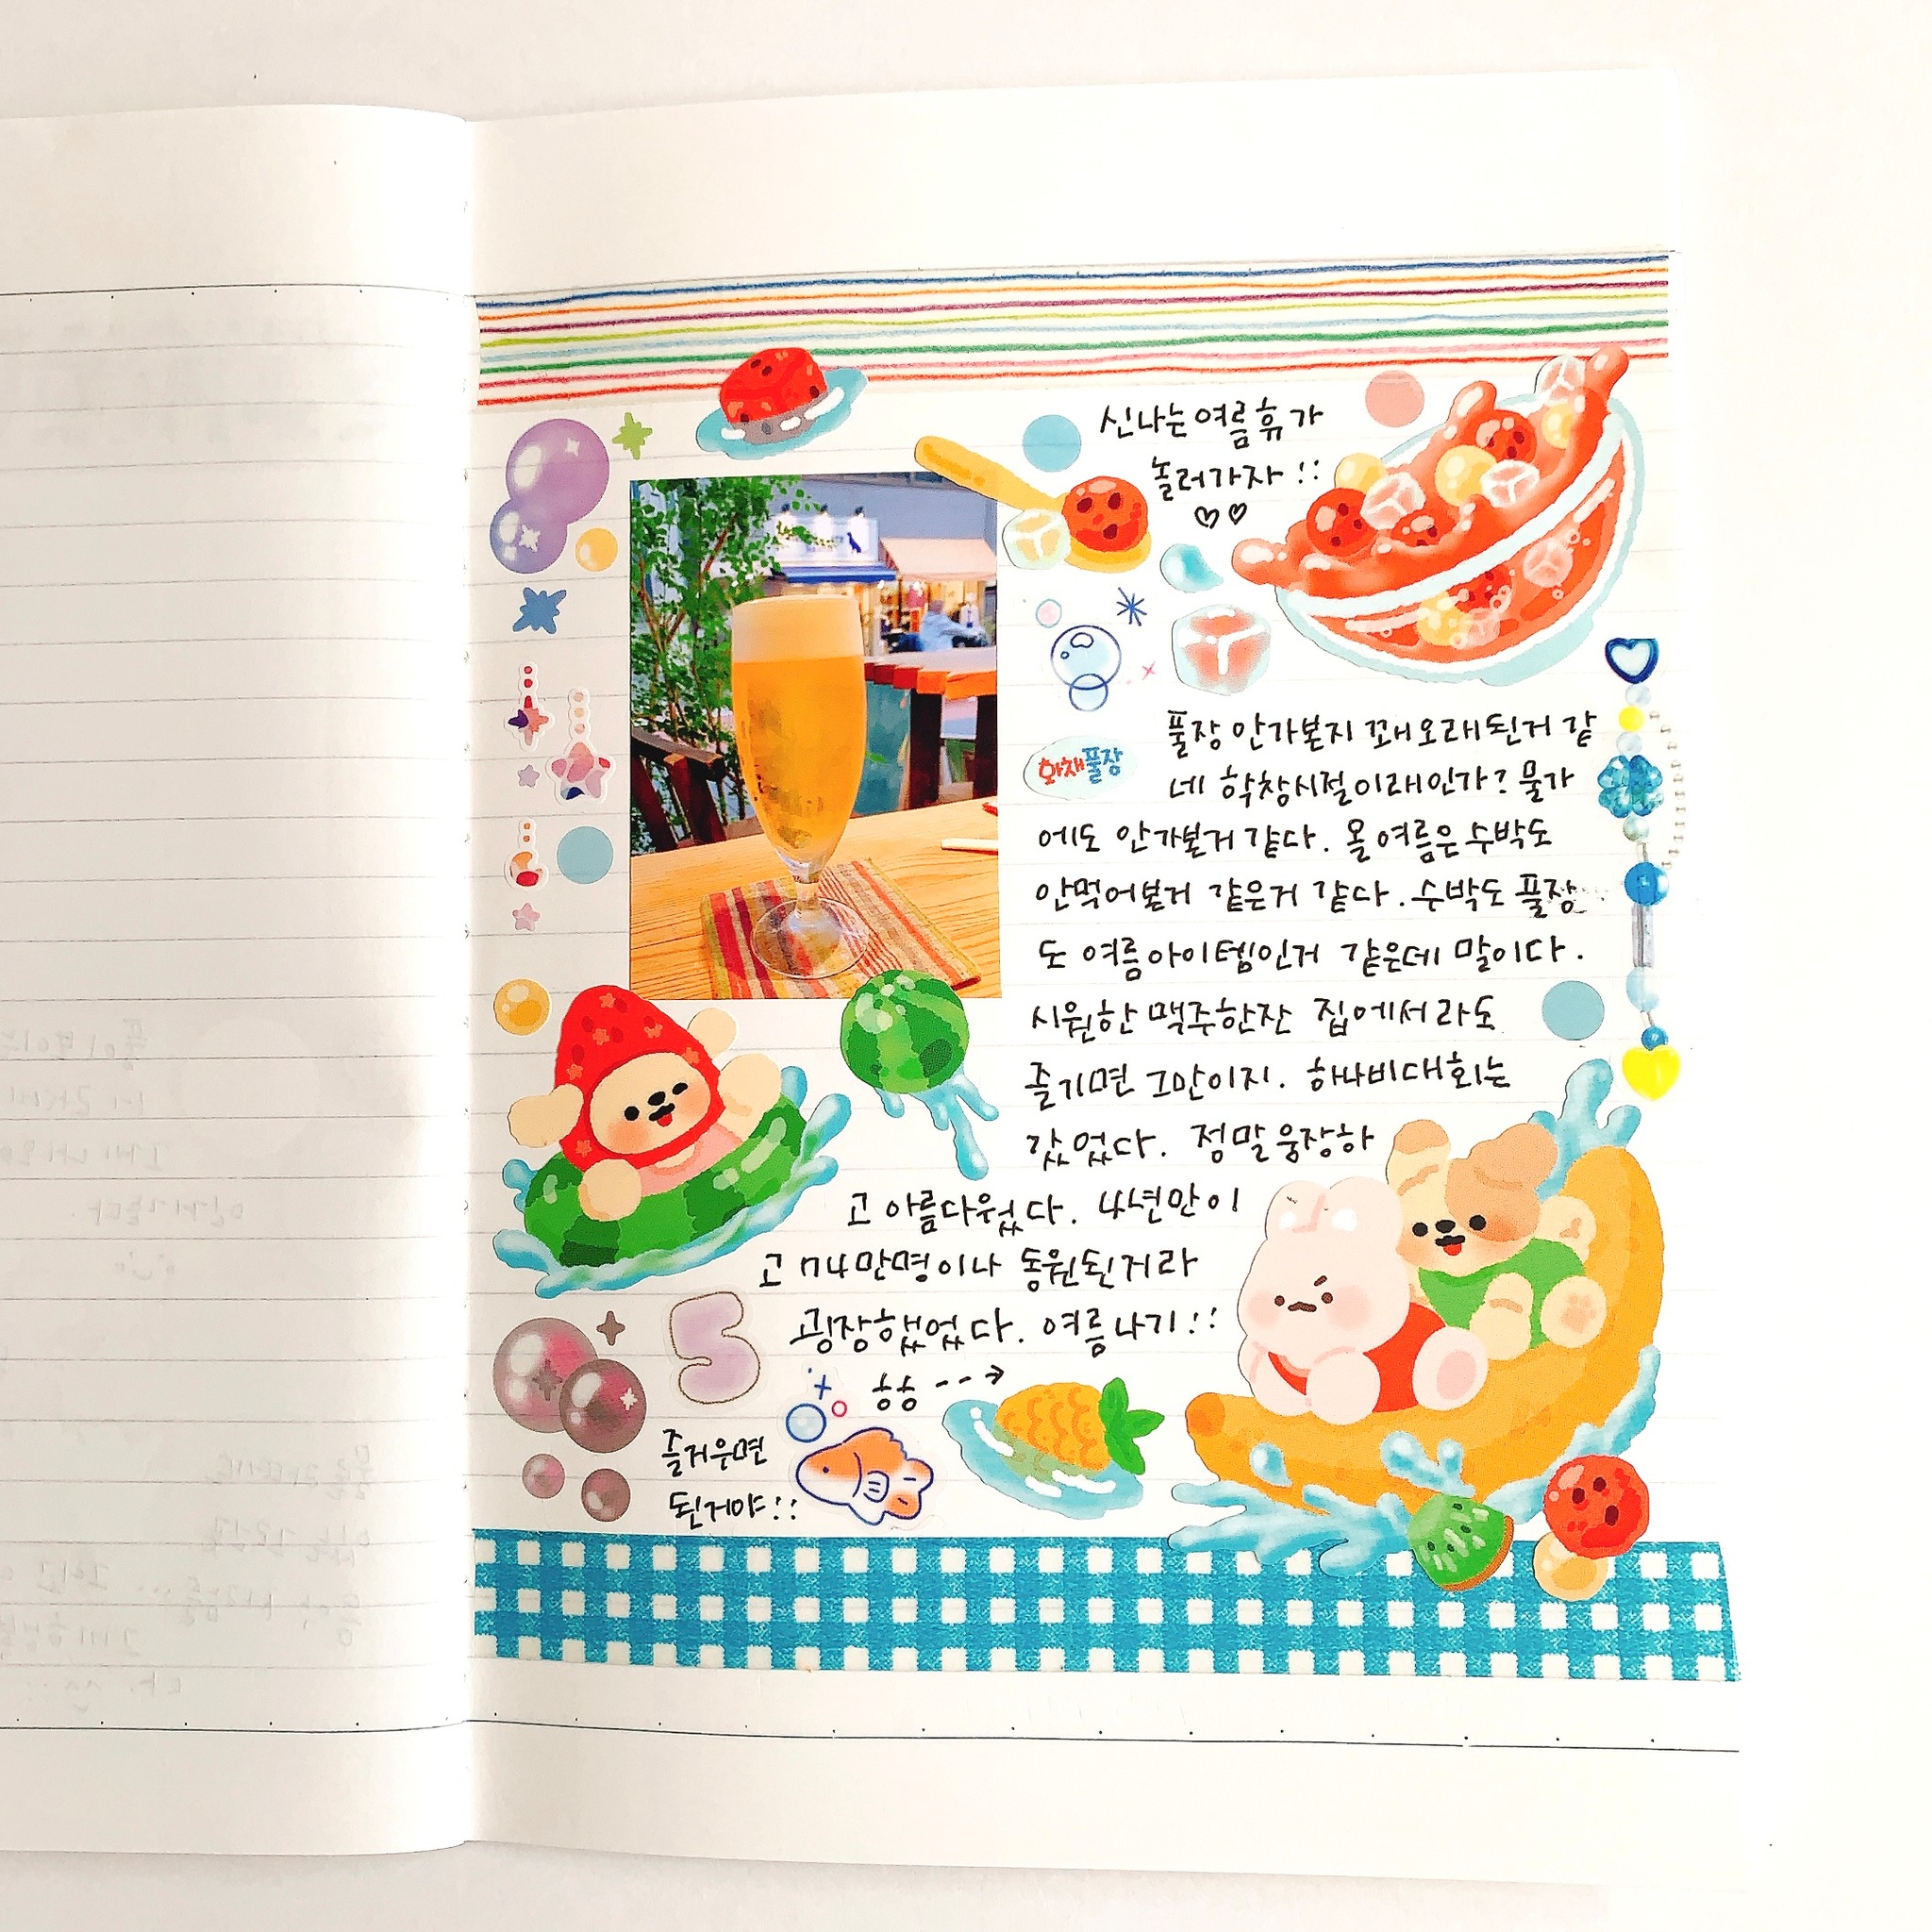 신나는 여름 휴가
놀러가자!!
화채풀장
풀장 안가본지 꽤 오래된거 같
네 학창시절 이래인가? 물가
에도 안가본거 같다. 올 여름은 수박도
안먹어본거 같은거 같다. 수박도 풀장
도 여름아이템인거 같은데 말이다.
시원한 맥주한잔 집에서라도
즐기면 그만이지. 하나비대회는
갔었다. 정말 웅장하
고 아름다웠다. 4년만이
고 74만명이나 동원된거라
굉장했었다. 여름나기!!
5
흥흥
즐거우면
된거야!!